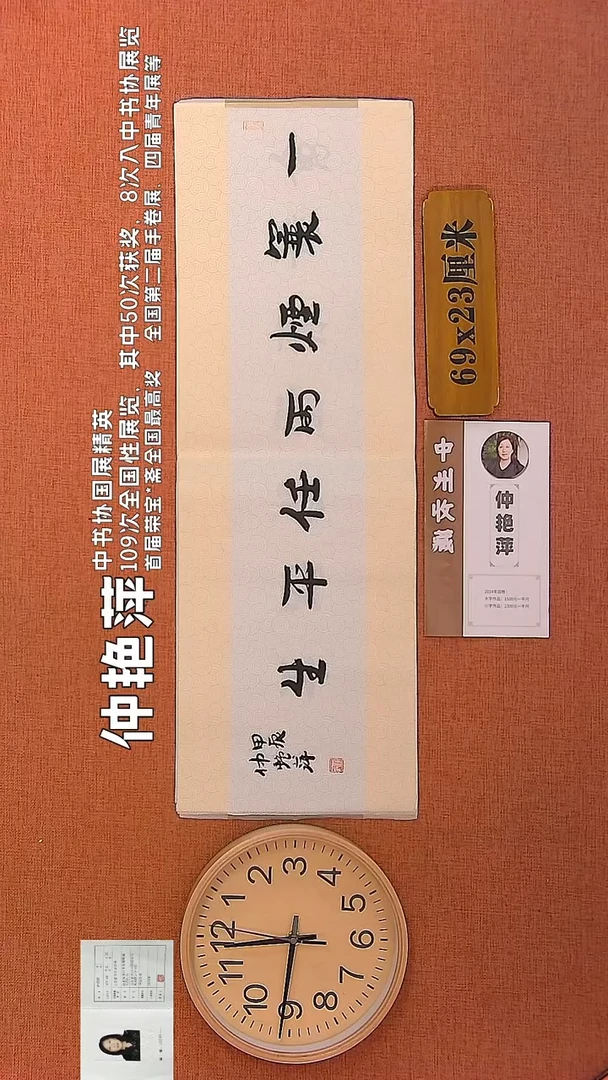 仲艳萍
中书协国展精英
109次全国性展览，其中50次获奖，8次入中书协展览
首届荣宝*斋全国最高奖 全国第二届手卷展 四届青年展等
一蓑煙雨任平生
甲辰
仲艳萍
69x23厘米
仲艳萍
12
1
2
3
4
5
6
7
8
9
10
11